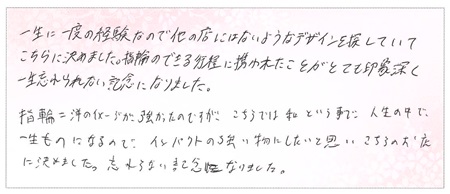 一生に一度の経験なので他の店にはないようなデザインを探していて
こちらに決めました。指輪のできる行程に携われたことがとても印象深く
一生忘れられない記念になりました。
指輪=洋のイメージが強かったのですが、こちらでは和という事で、人生の中で、
一生ものになるので、インパクトの強い物にしたいと思いこちらのお店
に決めました。忘れらない記念になりました。